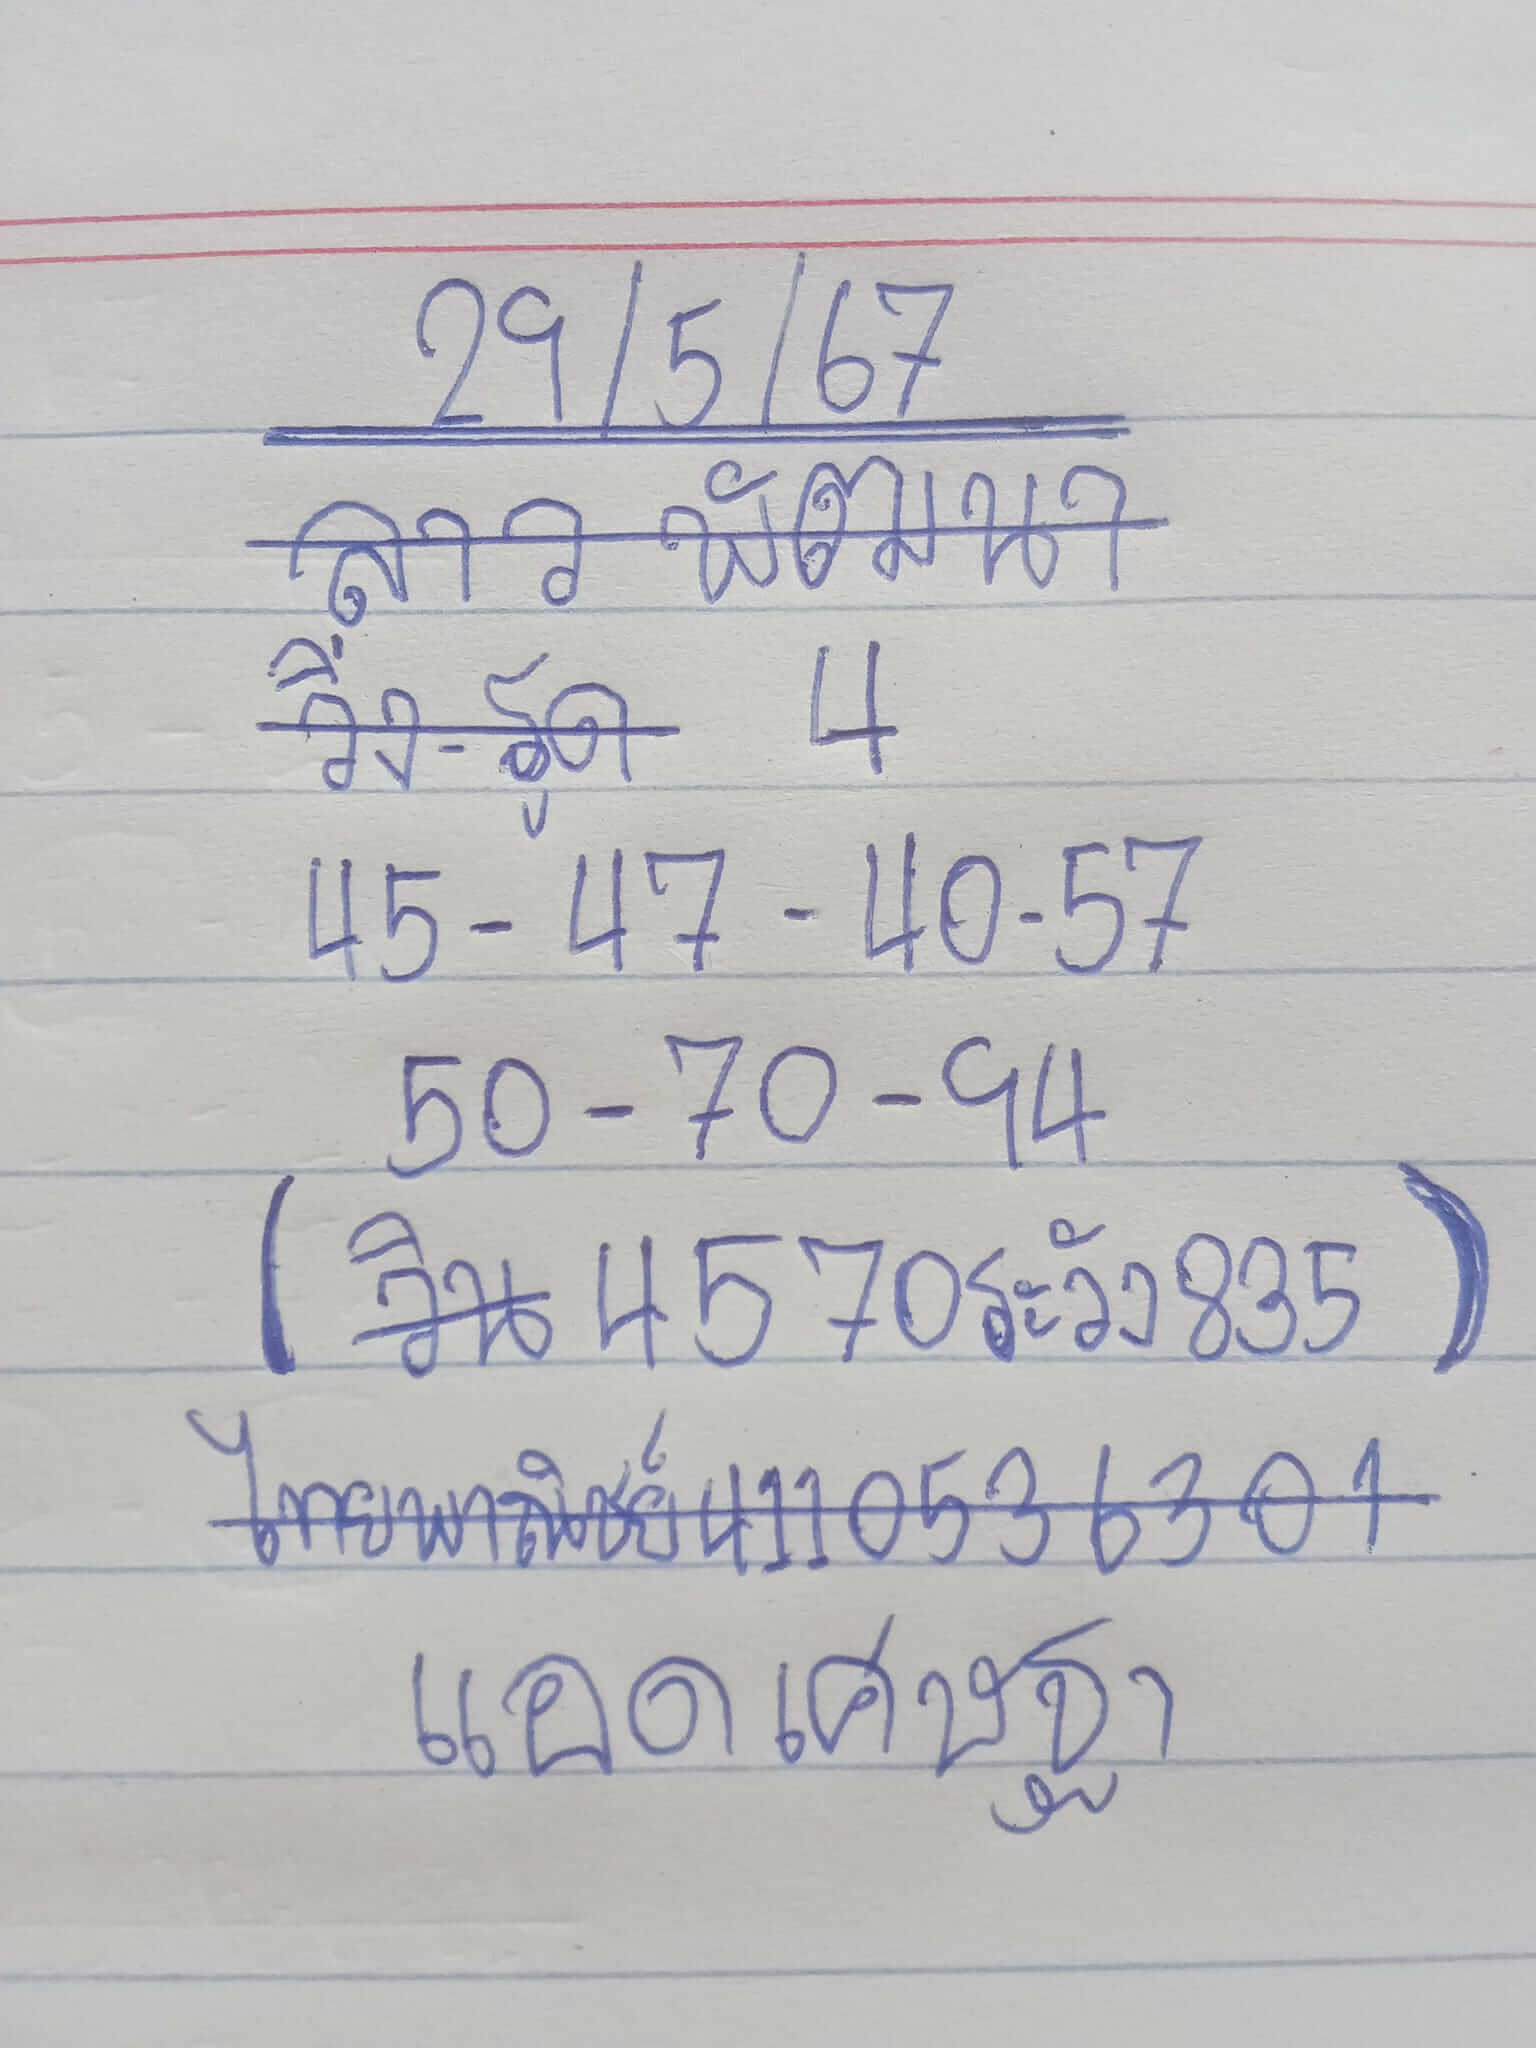 29/5/67
ลาว พัฒนา
วิ่ง-รูด 4
45-47-40-57
50-70-94
(วิน 4570ระวัง835)
ไทยพาณิชย์4110536301
แอดเศษฐา